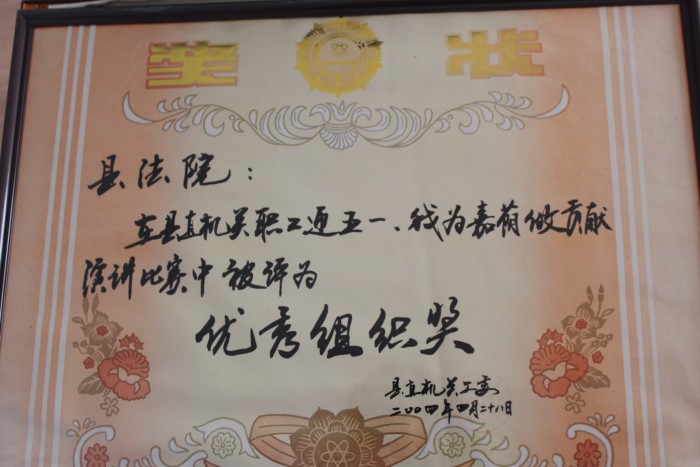 奖 状
县法院：
在县直机关职工迎五一、我为嘉荫做贡献
演讲比赛中被评为
优秀组织奖
县直机关工委
二00四年四月二十八日